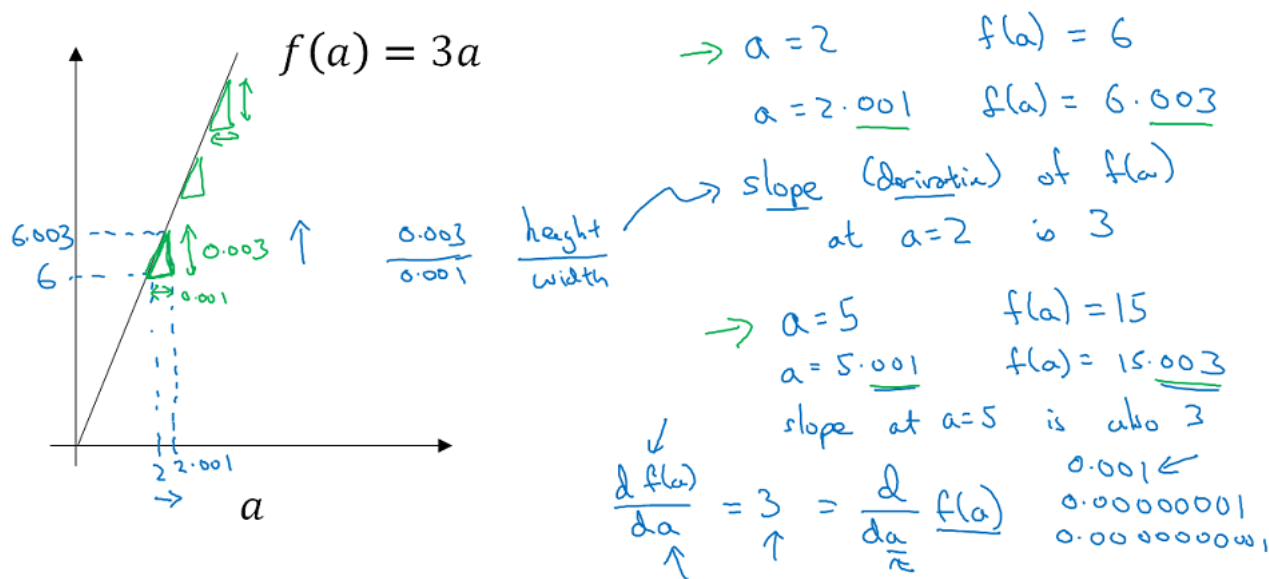 f(a) = 3a
6.003
6
0.003
0.001
2
2.001
a
0.003
0.001
height
width
a = 2 f(a) = 6
a = 2.001 f(a) = 6.003
slope (derivative) of f(a)
at a=2 is 3
a = 5 f(a) = 15
a = 5.001 f(a) = 15.003
slope at a=5 is also 3
d f(a)
da
= 3 =
d
da
f(a)
0.001
0.00000001
0.0000000001